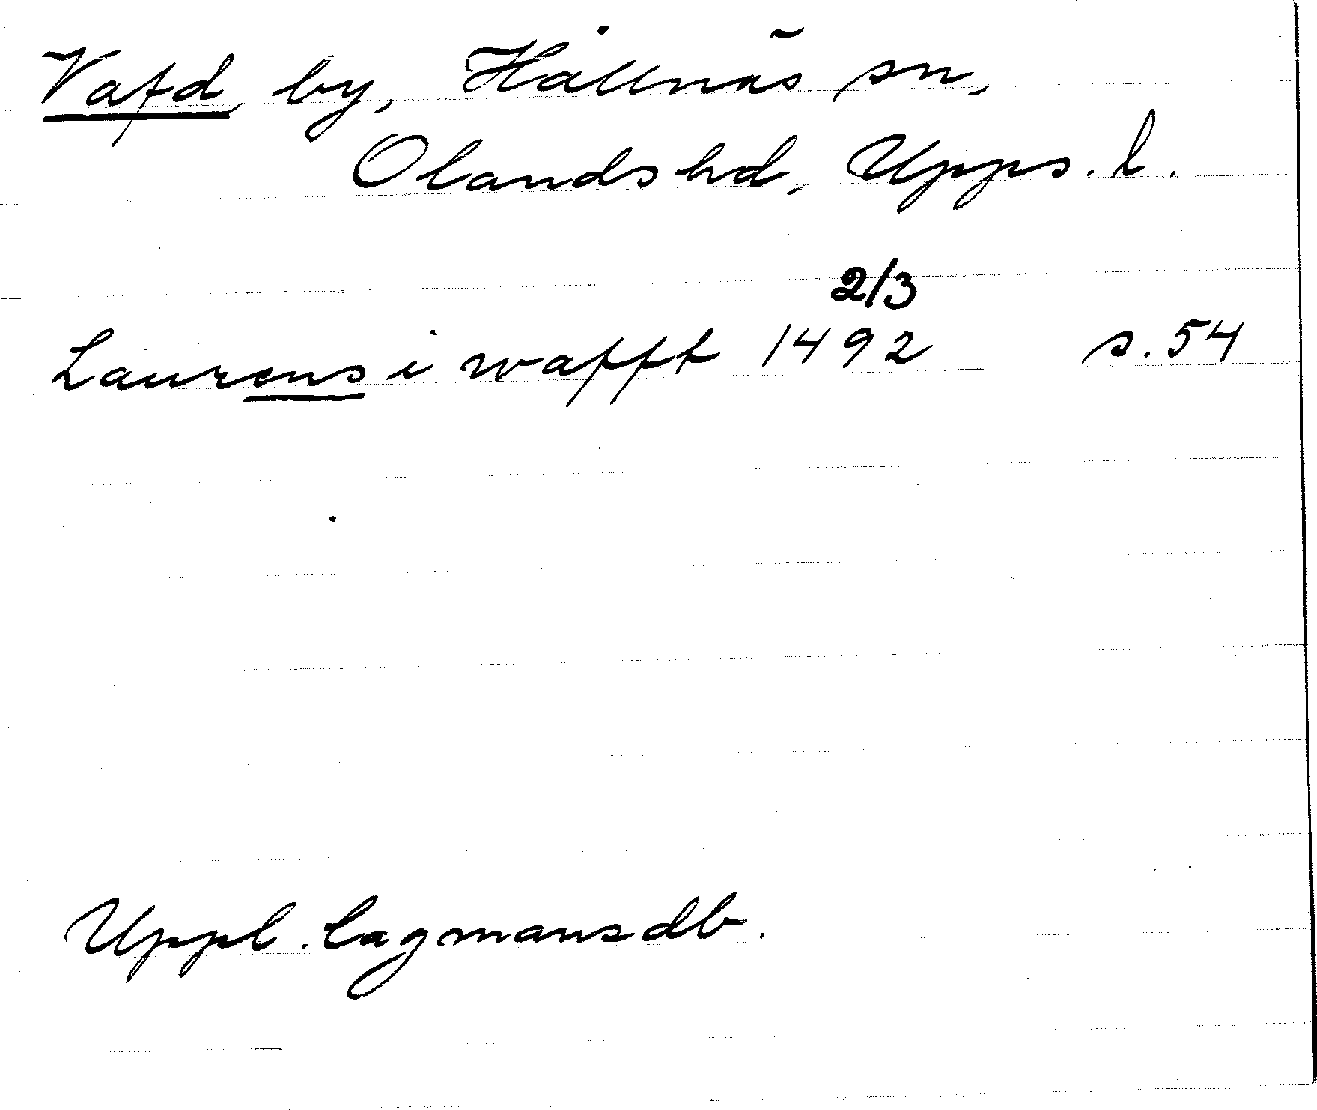 Vafd by, Hållnäs sn,
Olands hd, Upps. l.
2/3
Laurens i wafft 1492 s. 54
Uppl. lagmansdb.